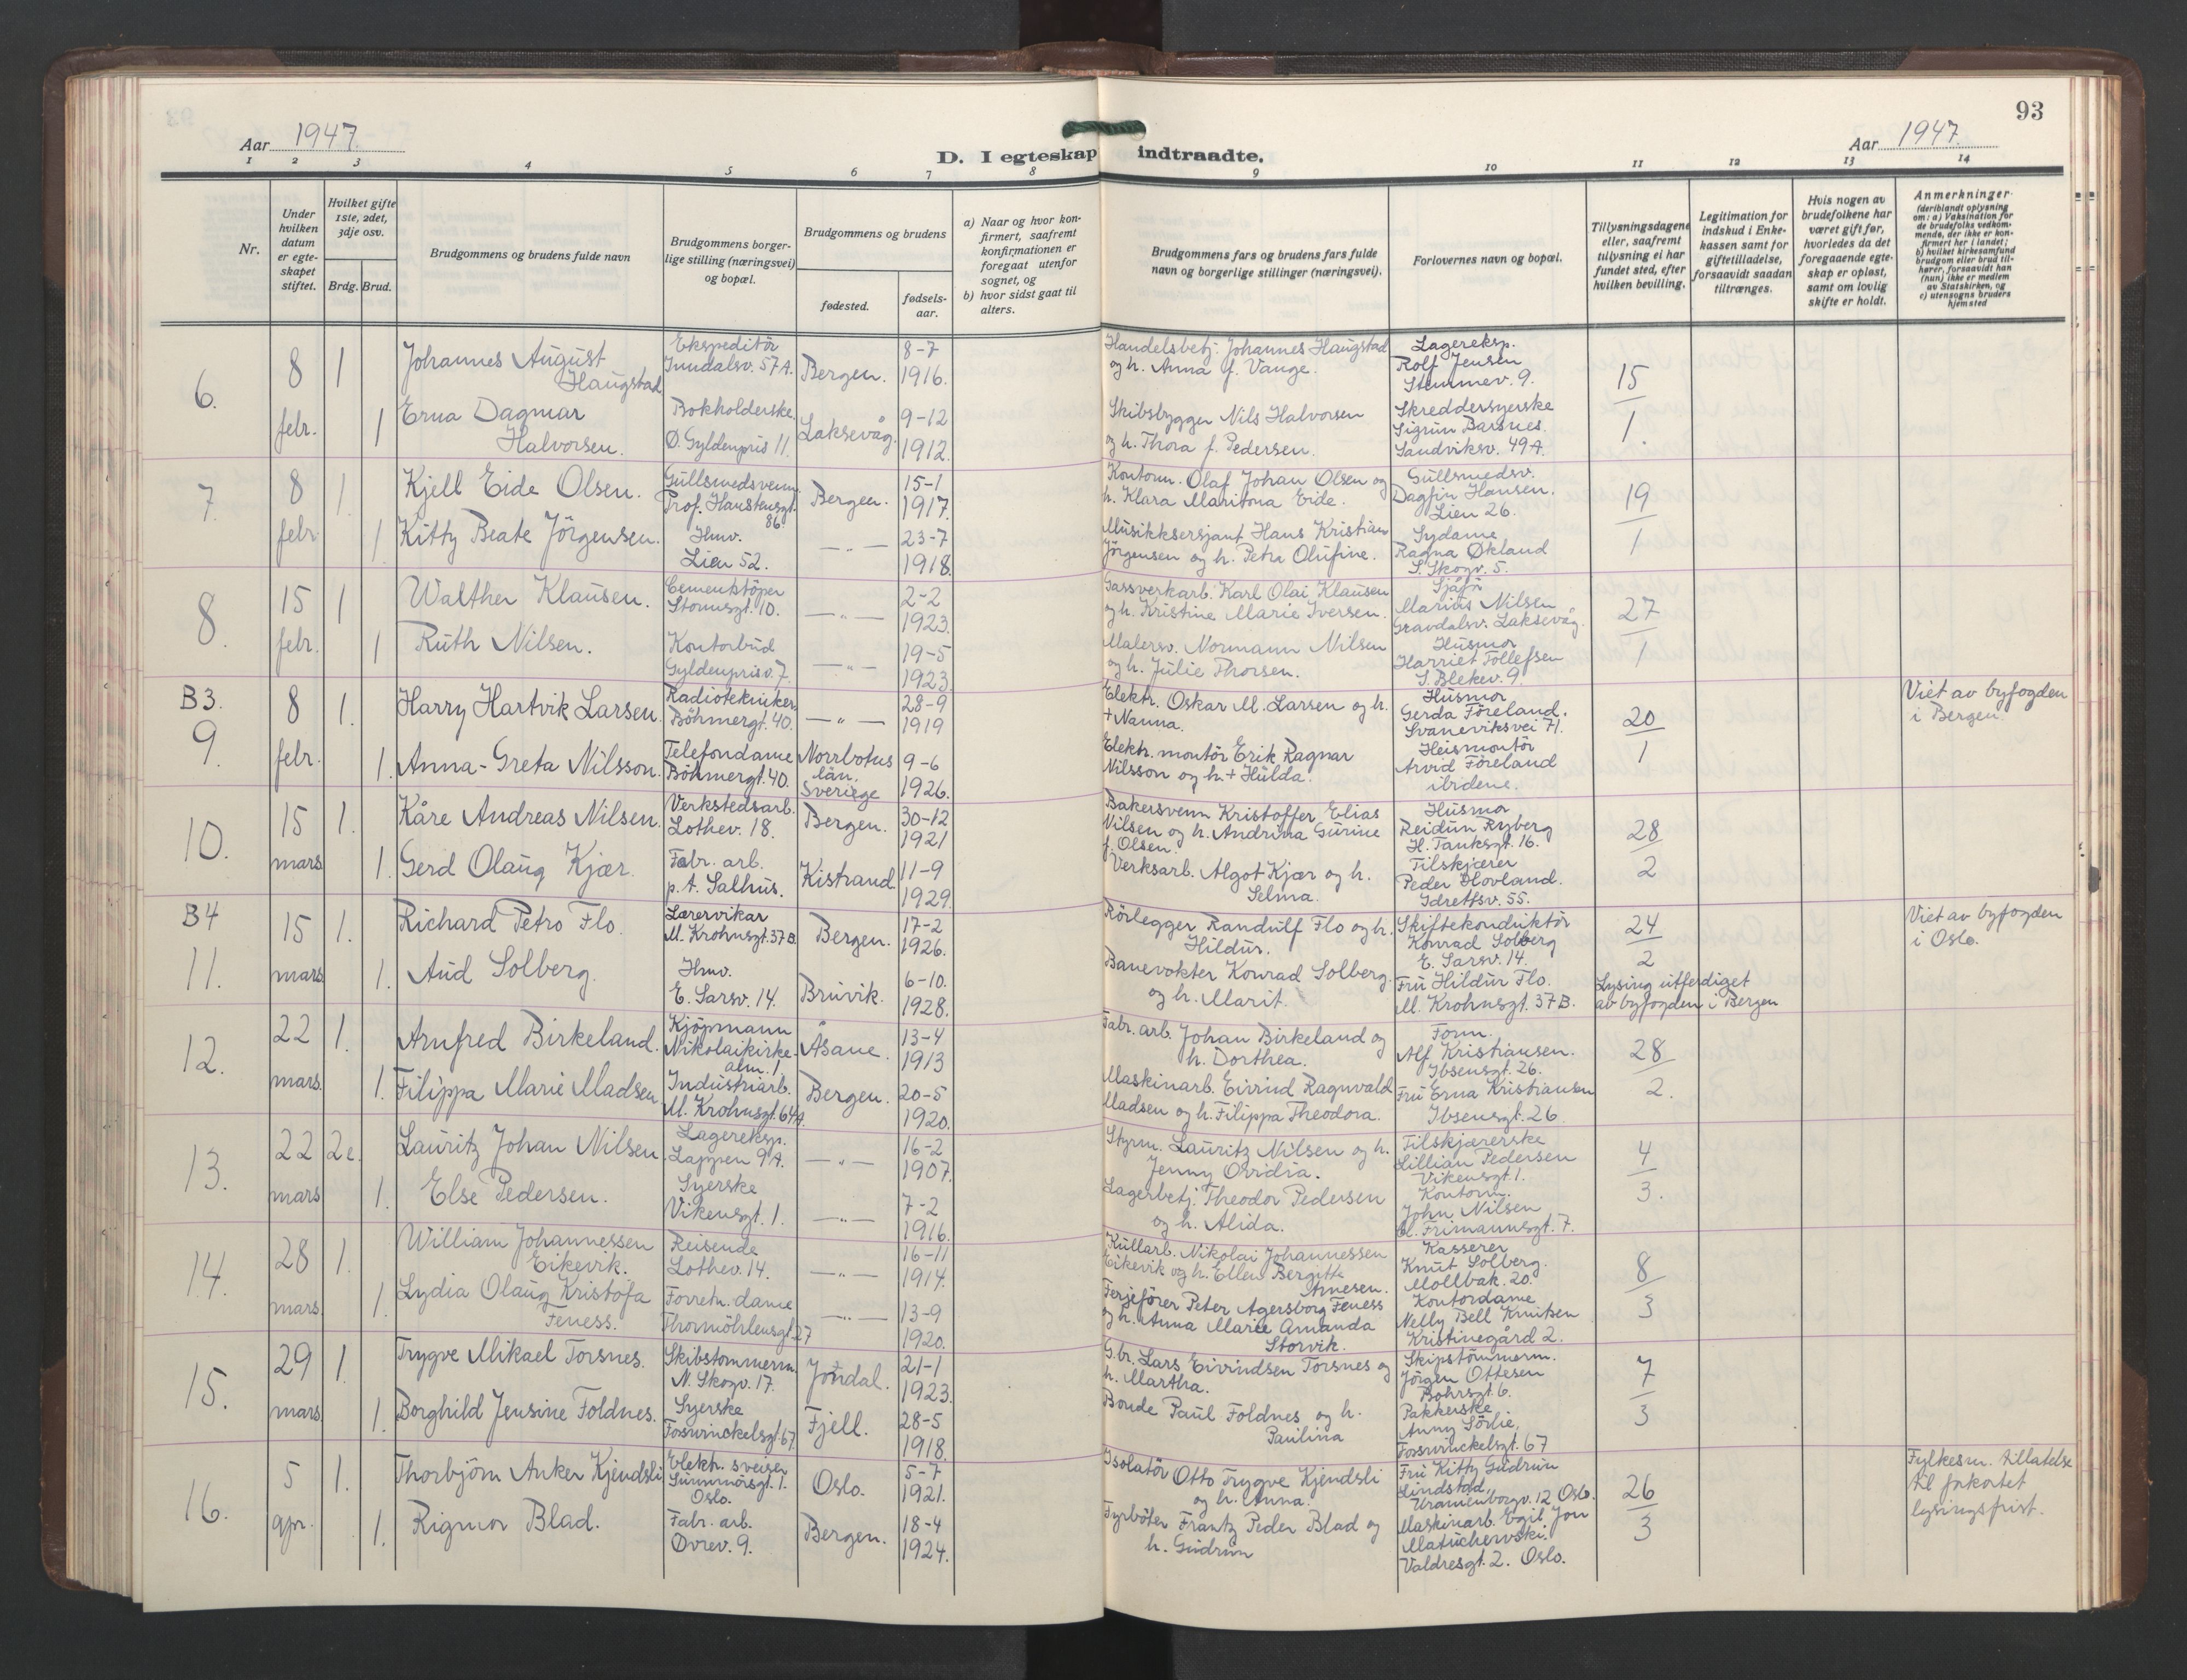 93
Aar 1947.
D. I egteskap indtraadte.
Aar 1947.
1 2 3 4 5 6 7 8 9 10 11 12 13 14
Nr.
Under hvilken datum er egteskapet stiftet.
Hvilket gifte 1ste, 2det, 3dje osv.
Brdg. Brud.
Brudgommens og brudens fulde navn
Brudgommens borgerlige stilling (næringsvei) og bopæl.
Brudgommens og brudens
fødested.
fødselsaar.
a) Naar og hvor konfirmert, saafremt konfirmationen er foregaat utenfor sognet, og
b) hvor sidst gaat til alters.
Brudgommens fars og brudens fars fulde navn og borgerlige stillinger (næringsvei).
Forlovernes navn og bopæl.
Tillysningsdagene eller, saafremt tillysning ei har fundet sted, efter hvilken bevilling.
Legitimation for indskud i Enkekassen samt for giftetilladelse, forsaavidt saadan tiltrænges.
Hvis nogen av brudefolkene har været gift før, hvorledes da det foregaaende egteskap er opløst, samt om lovlig skifte er holdt.
Anmerkninger (deriblandt oplysning om: a) Vaksination for de brudefolks vedkommende, der ikke er konfirmert her i landet; b) hvilket kirkesamfund brudgom eller brud tilhører, forsaavidt han (hun) ikke er medlem av Statskirken, og c) utensogns bruders hjemsted
6. 8 febr. 1 Johannes August Haugstad Ekspeditör Inndalsv. 57A. Bergen. 8-7 1916. Handelsbetj. Johannes Haugstad og h. Anna f. Vange. Lagereksp. Rolf Jensen Stemmev. 9. 15/1.
1 Erna Dagmar Halvorsen. Bokholderske Ø. Gyldenpris 11. Laksevåg. 9-12 1912. Skibsbygger Nils Halvorsen og h. Thora f. Pedersen. Skreddersyerske Sigrun Barsnes. Sandviksv. 49A.
7. 8 febr. 1. Kjell Eide Olsen. Gullsmedsvenn. Prof. Hanstensgt. 86 Bergen. 15-1 1917. Kontorm. Olaf Johan Olsen og h. Klara Maritona Eide. Gullsmedsv. Dagfin Hansen. Lien 26. 19/1
1 Kitty Beate Jörgensen. Hmv. Lien 52. —"— 23-7 1918. Musikksersjant Hans Kristian Jörgensen og h. Petra Olufine. Sydame Ragna Økland S. Skogv. 5.
8. 15 febr. 1 Walther Klausen. Cementstöper Stormsgt. 10. —"— 2-2 1923. Gassverkarb. Karl Olai Klausen og h. Kristine Marie Iversen. Sjåför Marius Nilsen Gravdalsv. Laksevåg. 27/1
1 Ruth Nilsen. Kontorbud Gyldenprisv. 7. —"— 19-5 1923. Malersv. Normann Nilsen og h. Julie Thorsen. Husmor Harriet Tollefsen S. Blekev. 9.
B3. 9. 8 febr. 1. Harry Hartvik Larsen. Radiotekniker Böhmergt. 40. —"— 28-9 1919 Elektr. Oskar M. Larsen og h. + Nanna. Husmor Gerda Föreland. Svaneviksvei 71. 20/1 Viet av byfogden i Bergen.
1. Anna-Greta Nilsson. Telefondame Böhmergt. 40. Norrbotns län. Sveriege 9-6 1926. Elektr. montör Erik Ragnar Nilsson og h. + Hulda. Heismontör Arvid Föreland ibidene.
10. 15 mars 1. Kåre Andreas Nilsen. Verkstedsarb. Lothev. 18. Bergen. 30-12 1921 Bakersvenn Kristoffer Elias Nilsen og h. Andrina Gurine f. Olsen. Husmor Reidun Ryberg H. Tanksgt. 16. 28/2
1. Gerd Olaug Kjær. Fabr. arb. p.A. Salhus. Kistrand 11-9 1929. Verksarb. Algot Kjær og h. Selma. Tilskjærer Peder Hovland. Idrettsv. 55.
B4 11. 15 mars 1. Richard Petro Flo. Lærervikar M. Krohnsgt. 37B. Bergen. 17-2 1926. Rörlegger Randulf Flo og h. Hildur. Skiftekonduktör Konrad Solberg E. Sarsv. 14. 24/2 Viet av byfogden i Oslo.
1. Aud Solberg. Hmv. E. Sarsv. 14. Bruvik. 6-10. 1928. Banevokter Konrad Solberg. og h. Marit. Fru Hildur Flo. M. Krohnsgt. 37B. Lysing utferdiget av byfogden i Bergen
12. 22 mars. 1. Arnfred Birkeland. Kjöpmann Nikolaikirke-alm. 1. Åsane. 13-4 1913 Fabr. arb. Johan Birkeland og h. Dorthea. Form. Alf Kristiansen. Ibsensgt. 26. 28/2.
1. Filippa Marie Madsen Industriarb. M. Krohnsgt. 64A. Bergen. 20-5 1920. Maskinarb. Eivind Ragnvald Madsen og h. Filippa Theodora. Fru Erna Kristiansen Ibsensgt. 26.
13. 22 mars 2e. Lauritz Johan Nilsen Lagereksp. Lappen 9A. —"— 16-2 1907. Styrm. Lauritz Nilsen og h. Jenny Ovidia. Tilskjærerske Lillian Pedersen Vikensgt. 1. 4/3.
1. Else Pedersen. Syerske Vikensgt. 1. —"— 7-2 1916. Lagerbetj. Theodor Pedersen og h. Alida. Kontorm. John Nilsen Cl. Frimannsgt. 7.
14. 28 mars 1. William Johannessen Eikevik. Reisende Lothev. 14. —"— 16-11 1914. Kullarb. Nikolai Johannessen Eikevik og h. Ellen Bergitte Arnesen. Kasserer Knut Solberg. Mollbak. 20. 8/3
1. Lydia Olaug Kristofa Feness. Forretn. dame Thormöhlensgt. 27 —"— 13-9 1920. Ferjeförer Peter Agersborg Feness og h. Anna Marie Amanda Storvik. Kontordame Nelly Bell Knutsen Kristinegård 2.
15. 29 mars 1. Trygve Mikael Torsnes. Skibstømmerm. N. Skogv. 17. Jondal. 21-1 1923. G.br. Lars Eivindsen Torsnes og h. Martha. Skipstömmerm. Jörgen Ottesen Bohrsgt. 6. 7/3
1. Borghild Jensine Foldnes. Syerske Forswinckelsgt. 67 Fjell. 28-5 1918. Bonde Paul Foldnes og h. Paulina Pakkerske Anny Sörlie, Forswinckelsgt. 67
16. 5 apr. 1. Thorbjörn Anker Kjendsli Elektr. sveiser Sunnmörsgt. 1. Oslo. Oslo. 5-7 1921. Isolatör Otto Trygve Kjendsli og h. Anna. Fru Kitty Gudrun Lindstad, Uranienborgv. 12 Oslo. 26/3 Fylkesm. tillatelse til forkortet lysingsfrist.
1. Rigmor Blad. Fabr. arb. Øvrev. 9. Bergen. 18-4 1924. Fyrböter Frantz Peder Blad og h. Gudrun Maskinarb. Egil Jon Matuchewski. Valdresgt. 2. Oslo.